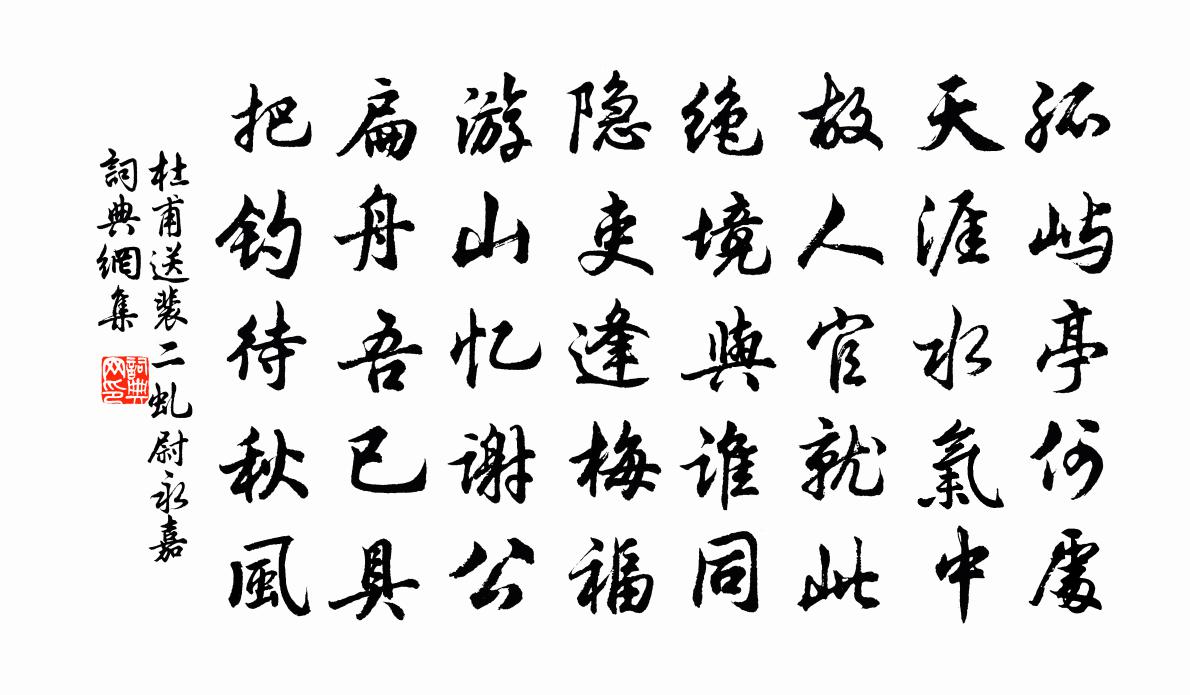 孤屿亭何處
天涯水氣中
故人官就此
绝境與誰同
隐吏逢梅福
游山忆谢公
扁舟吾已具
把钓待秋風
杜甫送裴二虬尉永嘉
詞典網集
詞典网印